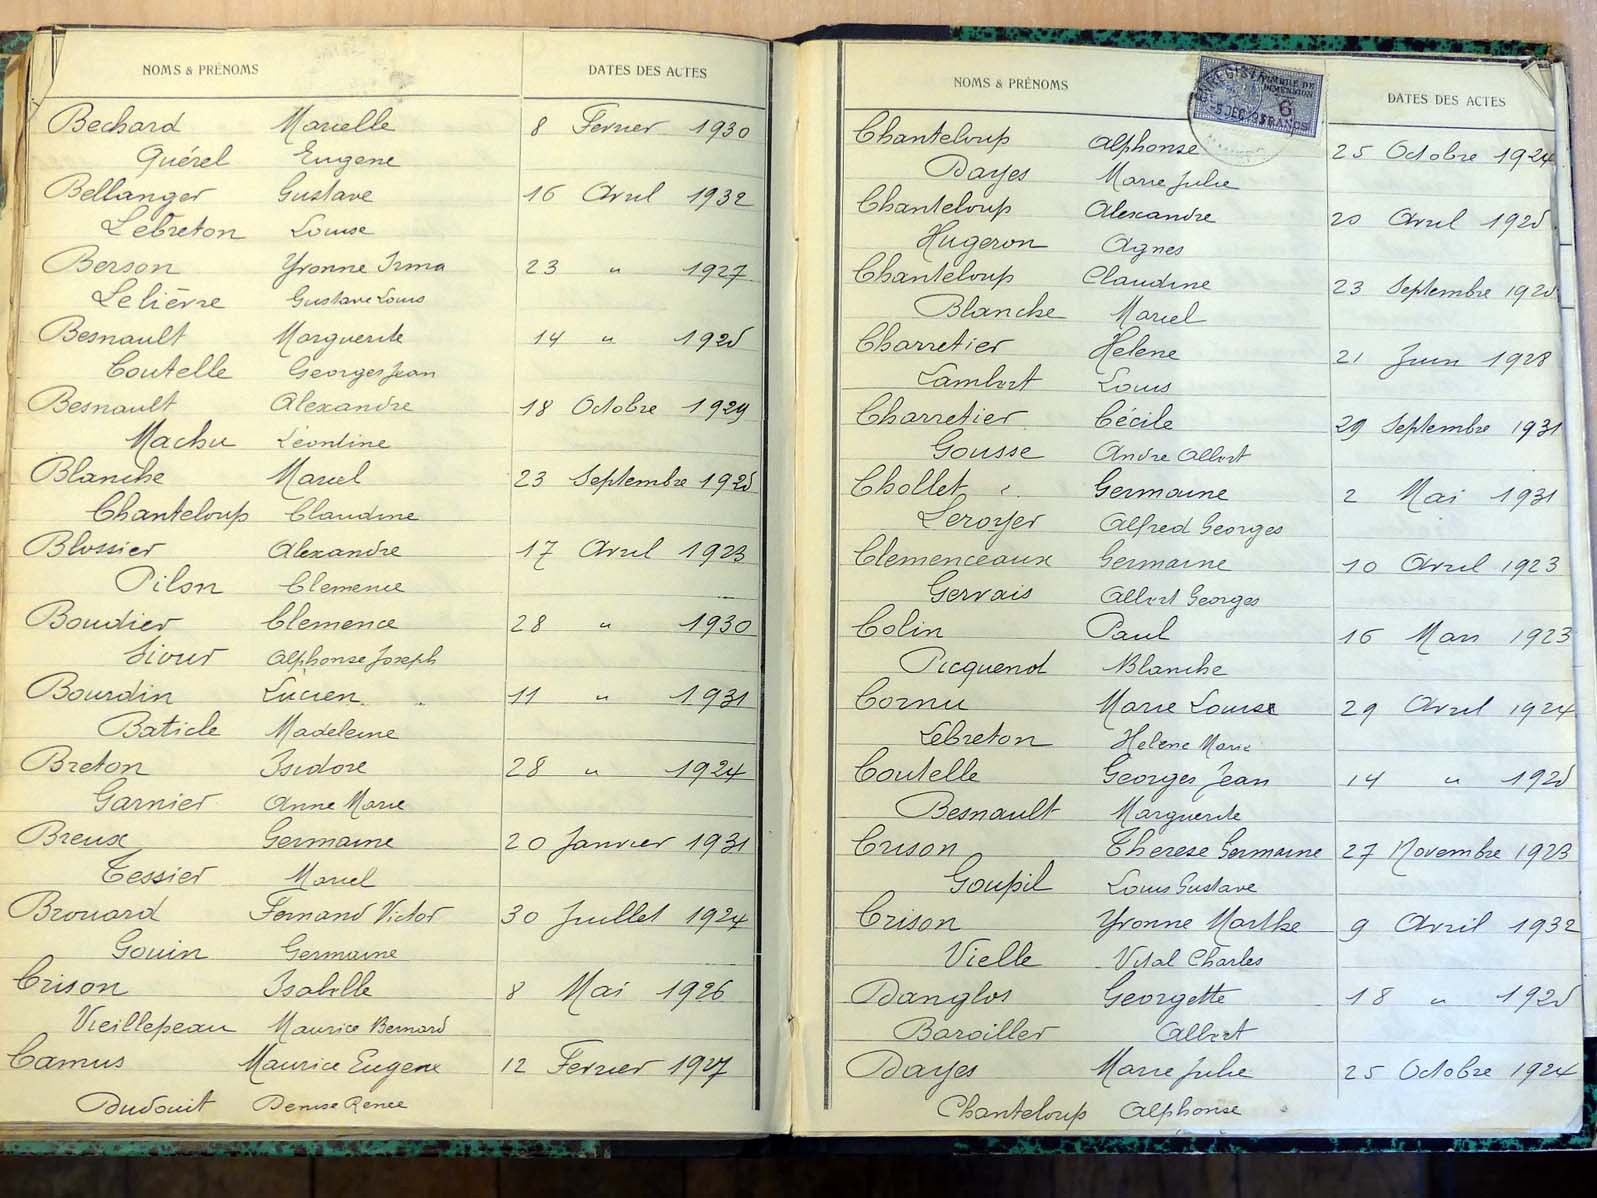 NOMS & PRÉNOMS DATES DES ACTES
Bechard Marcelle 8 Fevrier 1930
Quérel Eugene
Bellanger Gustave 16 Avril 1932
Lebreton Louise
Berson Yvonne Irma 23 " 1927
Lelièvre Gustave Louis
Besnault Marguerite 14 " 1925
Coutelle Georges Jean
Besnault Alexandre 18 Octobre 1929
Machu Léontine
Blanche Marcel 23 Septembre 1925
Chanteloup Claudine
Blossier Alexandre 17 Avril 1923
Pilon Clemence
Boudier Clemence 28 " 1930
Siour Alphonse Joseph
Bourdin Lucien 11 " 1931
Baticle Madeleine
Breton Isidore 28 " 1924
Garnier Anne Marie
Breux Germaine 20 Janvier 1931
Tessier Marcel
Brouard Fernand Victor 30 Juillet 1924
Gouin Germaine
Crison Isabelle 8 Mai 1926
Vieillepeau Maurice Bernard
Camus Maurice Eugene 12 Fevrier 1927
Dudouit Denise Renee
NOMS & PRÉNOMS DATES DES ACTES
ENREGIST TIMBRE DE DIMENSION
6
5 DEC FRANCS
Chanteloup Alphonse 25 Octobre 1924
Dayes Marie Julie
Chanteloup Alexandre 20 Avril 1925
Hugeron Agnes
Chanteloup Claudine 23 Septembre 1925
Blanche Marcel
Charretier Helene 21 Juin 1928
Lambert Louis
Charretier Cécile 29 Septembre 1931
Gousse Andre Albert
Chollet Germaine 2 Mai 1931
Leroyer Alfred Georges
Clemenceaux Germaine 10 Avril 1923
Gervais Albert Georges
Colin Paul 16 Mars 1923
Picquenot Blanche
Cornu Marie Louise 29 Avril 1924
Lebreton Helene Marie
Coutelle Georges Jean 14 " 1925
Besnault Marguerite
Crison Therese Germaine 27 Novembre 1923
Goupil Louis Gustave
Crison Yvonne Marthe 9 Avril 1932
Vielle Vital Charles
Danglos Georgette 18 " 1925
Baroiller Albert
Dayes Marie Julie 25 Octobre 1924
Chanteloup Alphonse